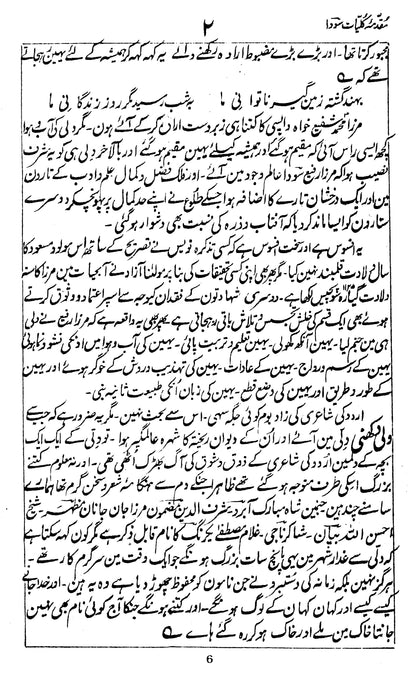 مقدمہ کلیات سودا
۲
مجبور کرتا تھا۔ اور بڑے بڑے مضبوط ارادہ رکھنے والے یہ کہہ کہہ کر ہمیشہ کے لئے یہیں رہجاتے
تھے کہ
بہند گشتہ زمین گیر ناتوانی ما بہ شب رسید مگر روز زندگانی ما
مرزا محمد شفیع خواہ واپسی کا کتنا ہی زبردست ارادہ کر کے آئے ہوں۔ مگر دلی کی آب و ہوا
کچھ ایسی راس آئی کہ مقیم ہو گئے اور ہمیشہ کیلئے یہیں مقیم ہو گئے اور بالآخر دلی ہی کو یہ شرف
نصیب ہوا کہ مرزا رفیع سودا عالم وجود میں آئے۔ اور فلک فضل و کمال علم و ادب کے تاروں
میں اور ایک درخشاں تارے کا اضافہ ہوا جسکے طلوع نے اپنے حد کمال پر پہونچکر دوسرے
ستاروں کو ایسا ماند کر دیا کہ آفتاب و ذرہ کی نسبت بھی دشوار ہو گئی
یہ افسوس ہے اور سخت افسوس ہے کہ کسی تذکرہ نویس نے تصریح کے ساتھ اس مولود مسعود کا
سال ولادت قلمبند نہیں کیا۔ مگر پھر بھی اپنی کسی تحقیقات کی بنا پر مولانا آزاد نے آبحیات میں مرزا کا سنہ
ولادت لکھا ہے۔ دوسری شہادتوں کے فقدان کیوجہ سے اسپر اعتماد و وثوق کرتے
ہوئے بھی ایک قسم کی خلش تجسس و تلاش باقی رہجاتی ہے پھر بھی یہ واقعہ ہے کہ مرزا رفیع نے دلی
ہی میں جنم لیا۔ یہیں آنکھ کھولی۔ یہیں تعلیم و تربیت پائی۔ یہیں کی آب و ہوا میں اونکی نشو و نما ہوئی
یہیں کے رسم و رواج۔ یہیں کے عادات۔ یہیں کی تہذیب و روش کے خوگر ہوئے اور یہیں
کے طور و طریق اور یہیں کی وضع قطع۔ یہیں کی زبان انکی طبیعت ثانیہ بنی۔
اردو کی شاعری کی زاد بوم کوئی جگہ سہی۔ اس سے بحث نہیں۔ مگر یہ ضرور ہے کہ جب سے
ولی دکھنی دلی میں آئے اور ان کے دیوان ریختہ کا شہرہ عالمگیر ہوا۔ تو دلی کے ایک ایک
بچے کے دلمیں اردو کی شاعری کے ذوق و شوق کی آگ بھڑک اٹھی تھی۔ اور نہ معلوم کتنے
بزرگ اسکی طرف متوجہ ہو گئے تھے ظاہر جنکے دم سے ہنگامہ شعر و سخن گرم تھا ہمارے
سامنے چند ہیں جنمیں شاہ مبارک آبرو۔ شرف الدین مضمون۔ مرزا جان جاناں مظہر۔ شیخ
احسن اللہ بیان۔ شاکر ناجی۔ غلام مصطفے یکرنگ کا نام قابل ذکر ہے مگر کون کہہ سکتا ہے
کہ دلی سے غدار شہر میں یہی پانچ سات بزرگ ہونگے جو ایک وقت میں سرگرم کار تھے۔
ہرگز نہیں بلکہ زمانہ کی دستبرد نے جن ناموں کو محفوظ چھوڑ دیا ہے وہ یہ ہیں۔ اور خدا جانے
کیسے کیسے اور کہاں کہاں کے لوگ ہونگے۔ اور کتنے ہونگے جنکا آج کوئی نام بھی نہیں
جانتا خاک میں ملے اور خاک ہو کر رہ گئے ہائے
6